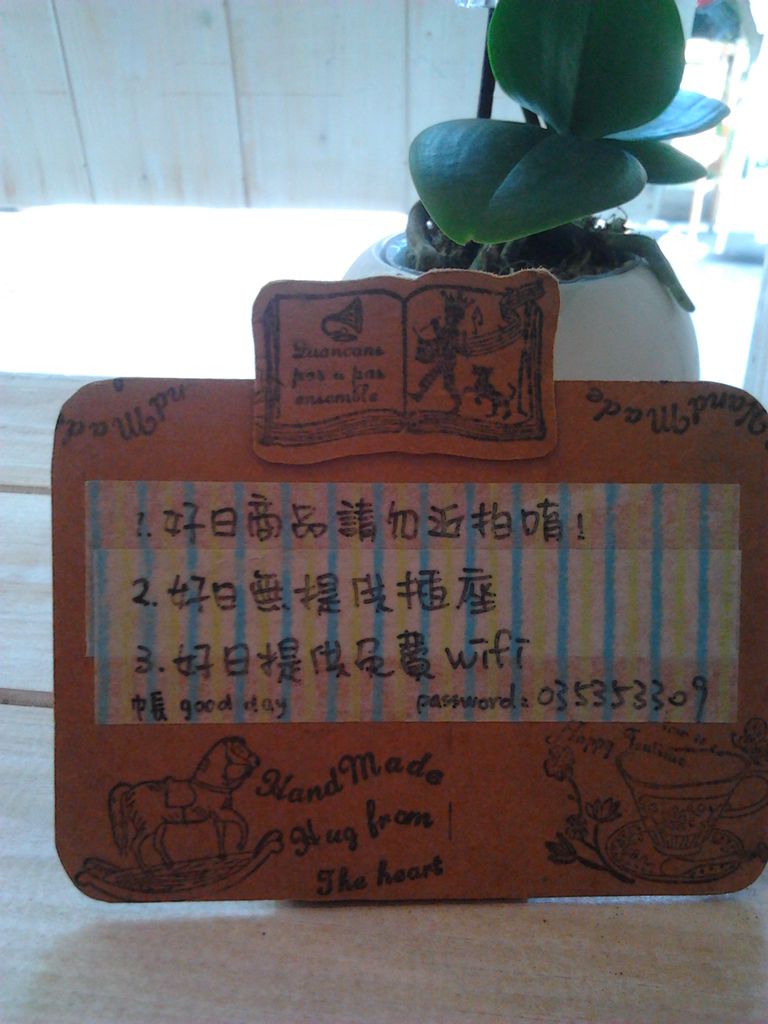 Quoncons
pas a pas
ensemble
Hand Made
Hand Made
1. 好日商品請勿近拍唷!
2. 好日無提供插座
3. 好日提供免費 wifi
帳 good day password: 035353309
Happy Teatime
Hand Made
Hug from
The heart